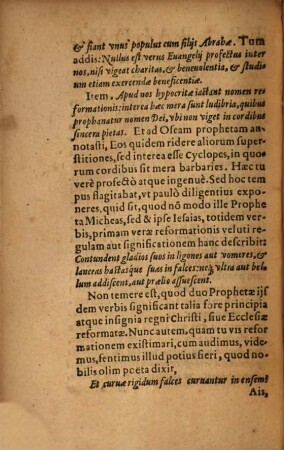 & fiant vnus populus cum filijs Abrahæ. Tum
addis: Nullus est verus Euangelij profectus inter
nos, nisi vigeat charitas, & beneuolentia, & studiũ
um etiam exercendæ beneficentiæ.
Item, Apud nos hypocritæ iactant nomen re
formationis: interea hæc mera sunt ludibria, quibus
prophanatur nomen Dei, vbi non viget in cordibus
sincera pietas. Et ad Oseam prophetam an
notasti, Eos quidem ridere aliorum super
stitiones, sed interea esse Cyclopes, in quo
rum cordibus sit mera barbaries. Hæc tu
verè profectò atque ingenuè. Sed hoc tem
pus flagitabat, vt paulò diligentius expo
neres, quid sit, quod nō modo ille Prophe
ta Micheas, sed & ipse Iesaias, totidem ver
bis, primam veræ reformationis veluti re
gulam aut significationem hanc describit:
Contundent gladios suos in ligones aut vomeres, &
lanceas hastasque suas in falces: neq; vltra aut bel
lum addiscent, aut prælio assuescent.
Non temere est, quod duo Prophetæ ijs
dem verbis significant talia fore principia
atque insignia regni Christi, siue Ecclesiæ
reformatæ. Nunc autem, quam tu vis refor
mationem existimari, cum audimus, vide
mus, sentimus illud potius fieri, quod no
bilis olim poeta dixit,
Et curuæ rigidum falces curuantur in ensem?
Ais,